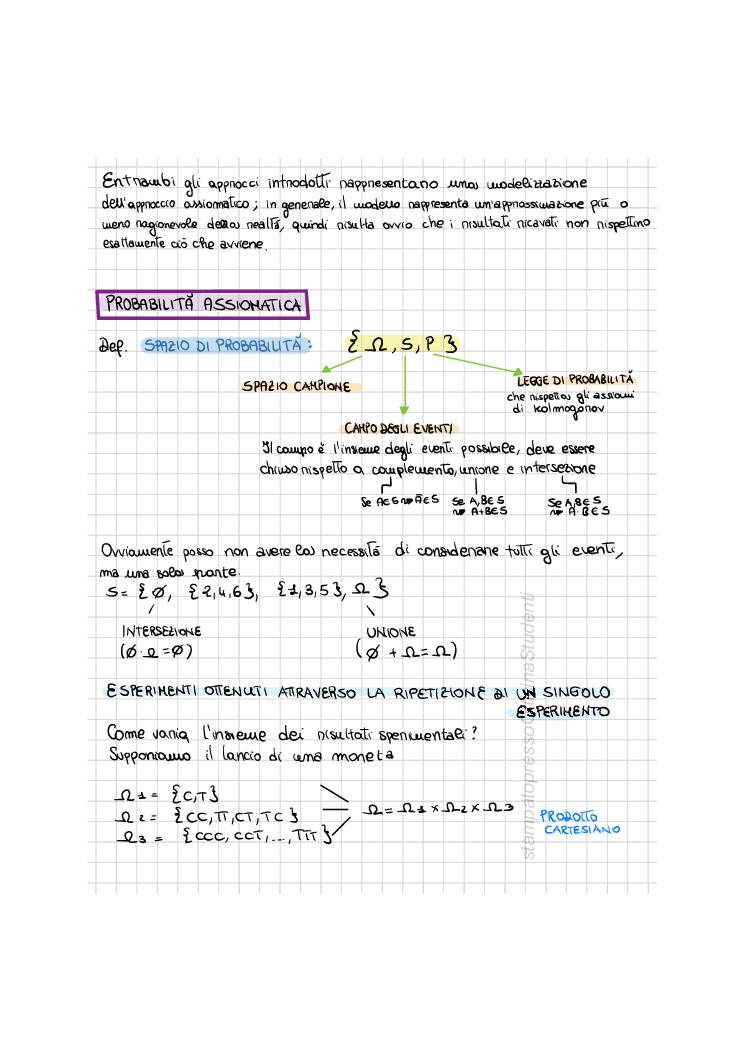 Entrambi gli approcci introdotti rappresentano una modelizzazione
dell'approccio assiomatico; in generale, il modello rappresenta un'approssimazione più o
meno ragionevole della realtà, quindi risulta ovvio che i risultati ricavati non rispettino
esattamente ciò che avviene.
PROBABILITÀ ASSIOMATICA
Def. SPAZIO DI PROBABILITÀ: { Ω, S, P }
SPAZIO CAMPIONE
LEGGE DI PROBABILITÀ
che rispetta gli assiomi
di kolmogorov
CAMPO DEGLI EVENTI
Il campo è l'insieme degli eventi possibile, deve essere
chiuso rispetto a complemento, unione e intersezione
Se A∈S ⇒ Ā∈S
Se A,B∈S
⇒ A+B∈S
Se A,B∈S
⇒ A·B∈S
Ovviamente posso non avere la necessità di considerare tutti gli eventi,
ma una sola parte.
S = { ∅, {2,4,6}, {1,3,5}, Ω }
INTERSEZIONE
(∅·Ω = ∅)
UNIONE
(∅ + Ω = Ω)
ESPERIMENTI OTTENUTI ATTRAVERSO LA RIPETIZIONE DI UN SINGOLO
ESPERIMENTO
Come varia l'insieme dei risultati sperimentali?
Supponiamo il lancio di una moneta
Ω1 = {C,T}
Ω2 = {CC, TT, CT, TC}
Ω3 = {CCC, CCT, ..., TTT}
Ω = Ω1 x Ω2 x Ω3
PRODOTTO
CARTESIANO